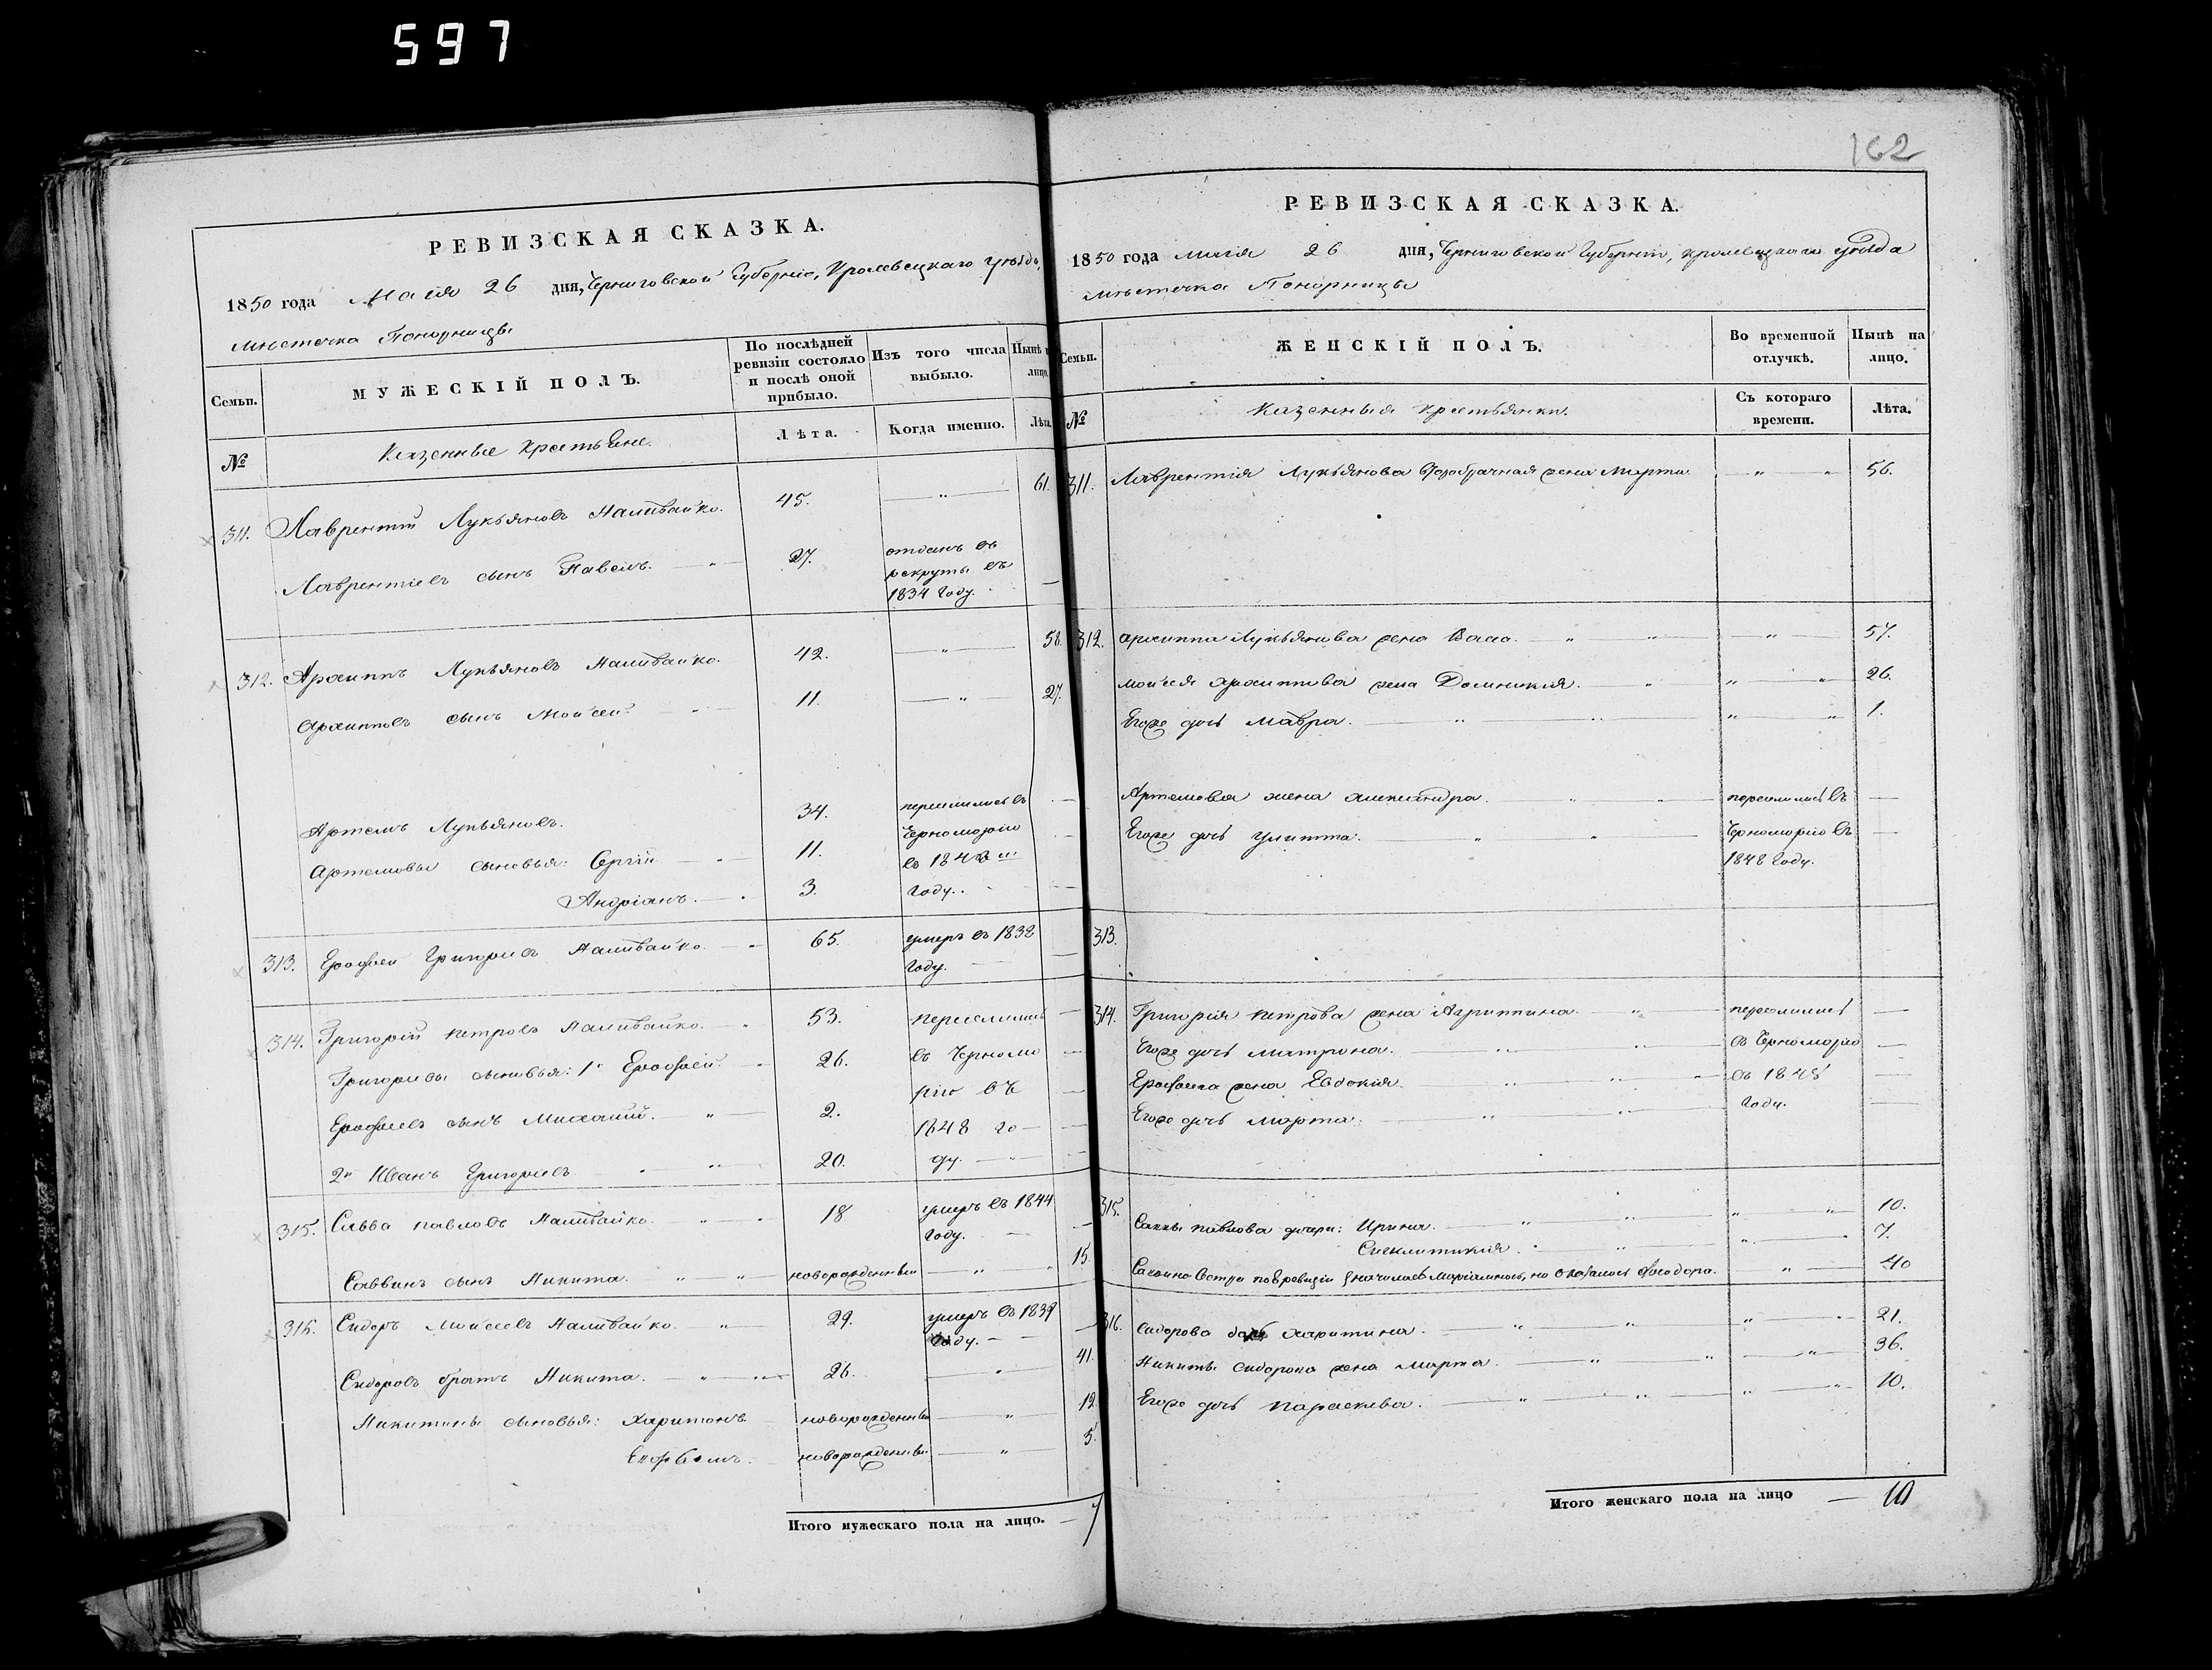 597
162
РЕВИЗСКАЯ СКАЗКА.
1850 года Маія 26 дня, Черниговской Губерніи, Кролевецкаго уѣзда,
мѣстечка Понорницы
Семьи.
МУЖЕСКІЙ ПОЛЪ.
По послѣдней ревизіи состояло и послѣ оной прибыло.
Изъ того числа выбыло.
Нынѣ на лицо.
№
Казенные Крестьяне.
Лѣта.
Когда именно.
Лѣта.
311. Лаврентій Лукьяновъ Наливайко. 45. — „ — 61.
Лаврентіевъ сынъ Павелъ. — „ — 27. отданъ въ
рекруты въ
1834 Году. —
312. Архиппъ Лукьяновъ Наливайко. 42. — „ — 58.
Архиповъ сынъ Моисей — „ — 11. — „ 27.
Артемъ Лукьяновъ. 34. переселились въ —
Артемовы сыновья: Сергій — „ — 11. Черноморію —
въ 1848 м
Андріанъ. — 3. Году. —
313. Ерофей Григорьевъ Наливайко — „ 65. умеръ въ 1838
Году. —
314. Григорій Петровъ Наливайко. — „ 53. переселились —
Григорьевы сыновья: 1й Ерофей. — 26. въ Черномо —
Ерофеевъ сынъ Михаилъ. — „ — 2. рію въ —
1848 го —
2й Иванъ Григорьевъ — „ 20. ду. — „
315. Савва Павловъ Наливайко. — „ 18 умеръ въ 1844
Году. — —
Саввинъ сынъ Никита. „ „ новорожденный — „ — 15.
316. Сидоръ Моисеевъ Наливайко „ 29. умеръ въ 1839
Году. — —
Сидоровъ братъ Никита. — „ 26. — „ 41.
Никитины сыновья: Харитонъ новорожденный — „ — 12.
новорожденный — „ — 5.
Итого мужескаго пола на лицо. — 7
РЕВИЗСКАЯ СКАЗКА.
1850 года маія 26 дня, Черниговской Губерніи, Кролевецкаго уѣзда
мѣстечка Понорницы
Семьи.
ЖЕНСКІЙ ПОЛЪ.
Во временной отлучкѣ.
Нынѣ на лицо.
№
Казенныя крестьянки.
Съ котораго времени.
Лѣта.
311. Лаврентія Лукьянова второбрачная жена Марта — „ „ 56.
312. Архиппа Лукьянова жена Васса. — „ „ „ 57.
Моисея Архиппова жена Домникія. „ „ — „ 26.
Егоже дочь Мавра. — „ „ „ — „ 1.
Артемова жена Александра. „ „ переселились въ —
Егоже дочь Улитта. „ „ Черноморію въ —
1848 Году.
313.
314. Григорія Петрова жена Агриппина. — „ переселились —
Егоже дочь Матрона. — „ „ въ Черноморію —
Ерофеева жена Евдокія. „ „ въ 1848 —
Егоже дочь Марта. — „ „ Году. —
315. Саввы Павлова дочери: Ирина. — „ „ „ „ 10.
Синклитикія. „ „ „ 7.
сестра по 8 ревизіи значилась но оказалось Феодора. „ — 40
316. Сидорова дочь Харитина. — „ „ „ „ 21.
Никиты Сидорова жена Марта. — „ „ „ 36.
Егоже дочь Параскева. — „ „ „ „ 10.
Итого женскаго пола на лицо — 10